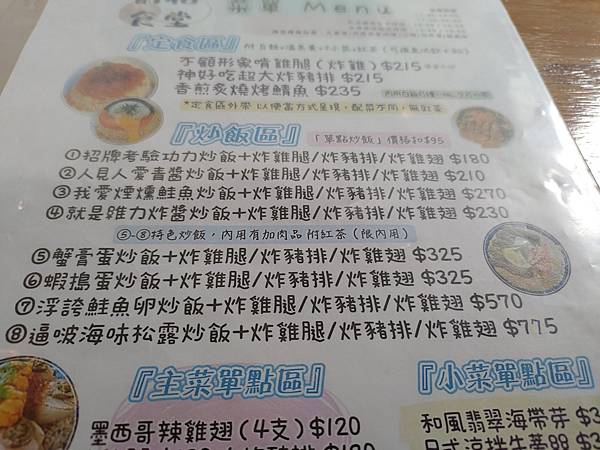 食堂
菜單 Menu
『定食區』
不顧形象啃雞腿(炸雞) $215
神好吃超大炸豬排 $215
香煎炙燒烤鯖魚 $235
*定食區外帶 以便當方式呈現,配菜不同,無紅茶
『炒飯區』 「單點炒飯」價格扣$95
①招牌考驗功力炒飯+炸雞腿/炸豬排/炸雞翅 $180
②人見人愛青醬炒飯+炸雞腿/炸豬排/炸雞翅 $210
③我愛煙燻鮭魚炒飯+炸雞腿/炸豬排/炸雞翅 $270
④就是雞力炸醬炒飯+炸雞腿/炸豬排/炸雞翅 $230
⑤-⑧特色炒飯,內用有加肉品 附紅茶(限內用)
⑤蟹膏蛋炒飯+炸雞腿/炸豬排/炸雞翅 $325
⑥蝦搗蛋炒飯+炸雞腿/炸豬排/炸雞翅 $325
⑦浮誇鮭魚卵炒飯+炸雞腿/炸豬排/炸雞翅 $570
⑧逼啵海味松露炒飯+炸雞腿/炸豬排/炸雞翅 $775
『主菜單點區』
墨西哥辣雞翅(4支)$120
『小菜單點區』
和風翡翠海帶芽 $3
日式涼拌牛蒡絲 $3